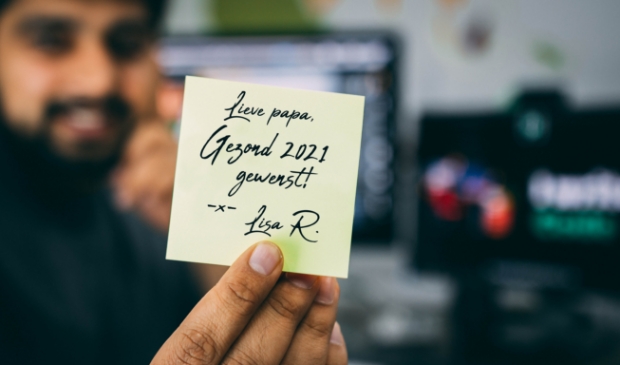 Lieve papa,
Gezond 2021
gewenst!
-x-
Lisa R.